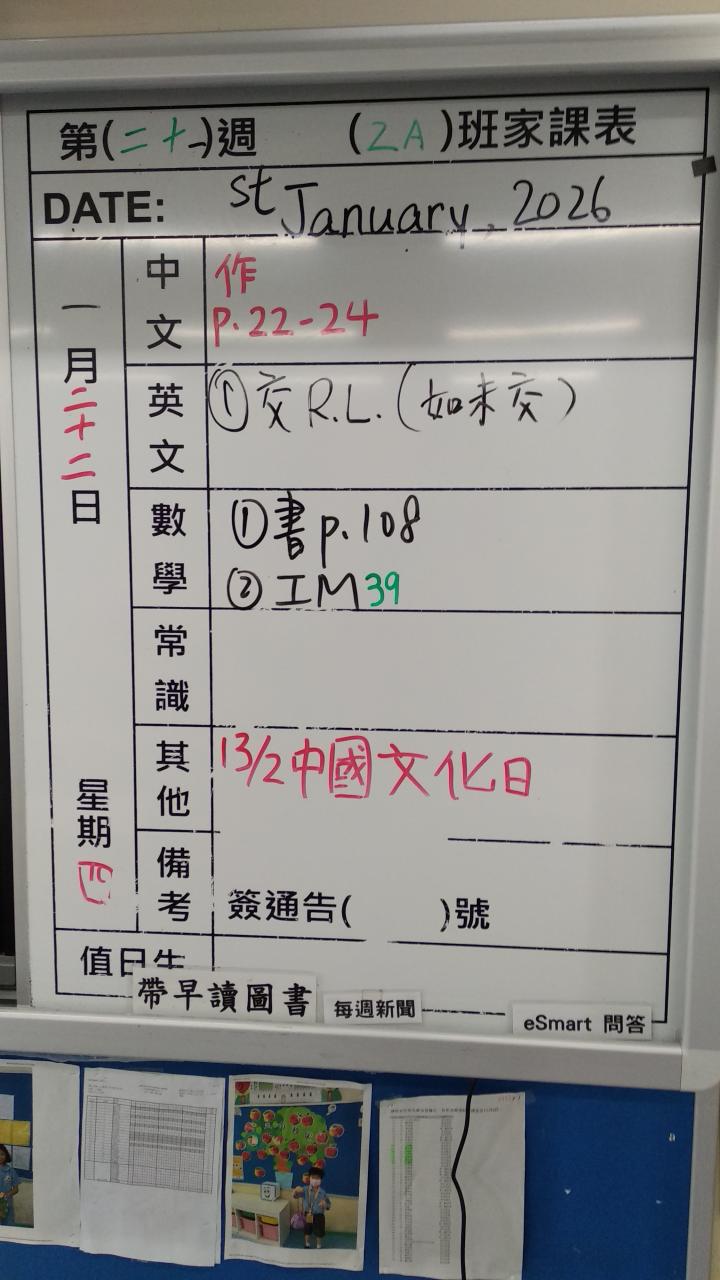 第(二十一)週 (2A)班家課表
DATE: st January, 2026
一月二十二日 星期四
中文
作
P.22-24
英文
①交 R.L.(如未交)
數學
①書 p.108
②IM39
常識
其他
13/2中國文化日
備考
簽通告( )號
值日生
帶早讀圖書
每週新聞
eSmart 問答